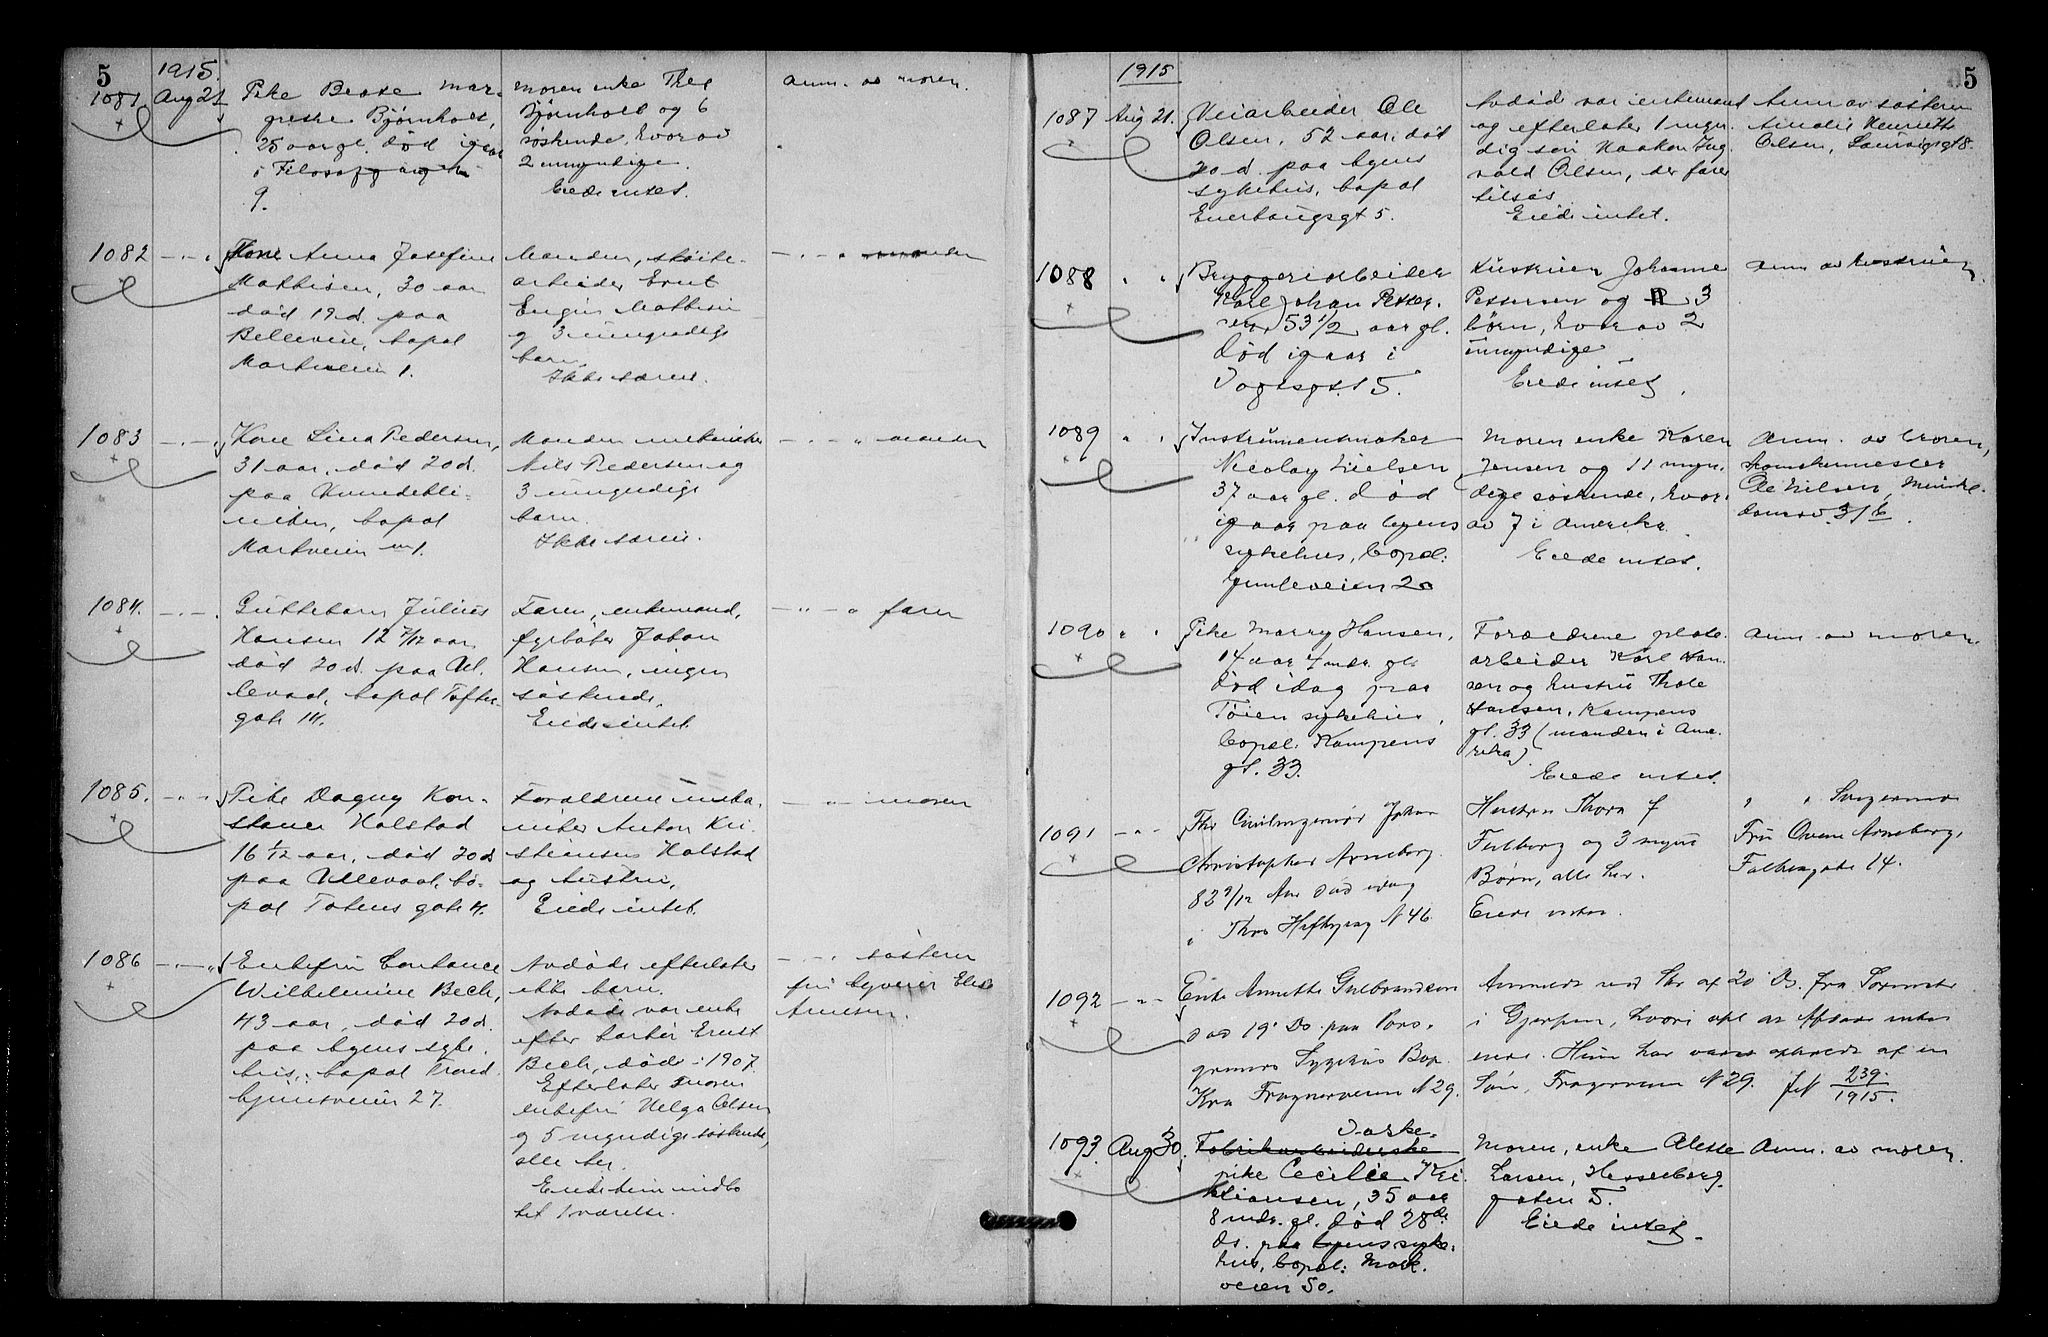 5
1915.
1081 Aug 21 Pike Beate Mar-
grethe Bjørnholt,
25 aar gl. død igaar
i Filosofgangen
9.
Moren enke Thea
Bjørnholt og 6
søskende, hvorav
2 umyndige.
Eiede intet.
Anm. av moren.
1082 Kone Anna Josefine
Mathisen, 30 aar
død 19 d. paa
Bellevue, bopæl
Markveien 1.
Manden,
arbeider
Mathisen
og 3 umyndige
barn.
Ikke særeie.
manden
1083 Kone Lina Pedersen,
31 aar, død 20 d.
paa Kvindekli-
niken, bopæl
Markveien 1.
Manden mekaniker
Nils Pedersen og
3 umyndige
barn.
Ikke særeie.
manden
1084. Guttebarn Julius
Hansen 12 7/12 aar,
død 20 d. paa Ul-
levaal, bopæl Tofte-
gate 14.
Faren, enkemand,
fyrbøter Johan
Hansen, ingen
søskende.
Eiede intet.
faren
1085. Pike Dagny Kon-
stance Halstad
16 1/12 aar, død 20 d
paa Ullevaal, bo-
pæl Totens gate 4.
Forældrene
Anton Kri-
stiansen Halstad
og hustru,
Eiede intet.
moren
1086 Enkefru Contance
Wilhelmine Bech,
43 aar, død 20 d.
paa byens syke-
hus, bopæl Trond-
hjemsveien 27.
Avdøde efterlater
ikke barn.
Avdøde var enke
efter barber Ernst
Bech, døde i 1907.
Efterlater moren
enkefru Helga Olsen
og 5 myndige søskende,
alle her.
Eiede kun indbo
til 1 værelse.
søsteren
fru
1915
5
1087 Aug 21. Veiarbeider Ole
Olsen, 52 aar, død
20 d. paa byens
sykehus, bopæl
Enerhaugsgt 5.
Avdød var enkemand
og efterlater 1 myn-
dig søn Haakon Ing-
vald Olsen, der farer
tilsøs.
Eiede intet.
Anm av søsteren
Amalie Henriette
Olsen,
1088 Bryggeriarbeider
Karl Johan Petter-
sen, 53 1/2 aar gl.
Død igaar i
Vogtsgt. 15.
Hustruen Johanne
Pettersen og 3
børn, hvorav 2
umyndige
Eiede intet.
Anm av hustruen.
1089 Instrumentmaker
Nicolay Nielsen
37 aar gl. død
igaar paa byens
sykehus, bopæl:
Gimleveien 20
Moren enke Karen
Jensen og 11 myn-
dige søskende, hvor-
av 7 i Amerika.
Eiede intet.
Anm. av broren,
Ole Nilsen,
1090 Pike Marry Hansen,
14 aar 7 mdr. gl.
død idag paa
Tøien sykehus,
bopæl: Kampens
gt. 33.
Forældrene plate-
arbeider Karl Han-
sen og hustru Thale
Hansen, Kampens
gt. 33 (manden i Ame-
rika).
Eiede intet.
Anm. av moren.
1091 Fhv Civilingeniør Johan
Christopher Arneberg.
82 9/12 Aar Død idag
i Thos Heftyesvg N 46.
Hustru Thora f
og 3 mynd
Børn, alle her.
Eiede intet.
Fru Arneberg,
Falbesgate 14.
1092 Enke Annette Gulbrandsen
Død 19' Ds. paa Pors-
grunds Sygehus Bop.
Kra Frognerveien N 29.
Anmeldt ved Skr af 20 Ds. fra
i Gjerpen, hvori opl at Afdøde intet
eiede. Hun har været opholdt af en
Søn, Frognerveien N 29. Jnl 239/1915.
1093. Aug 30. Fabrikarbeiderske
Vaske-
pike Cecilie Kri-
stiansen, 35 aar
8 mdr. gl. død 28de
ds. paa byens syke-
hus, bopæl: Mark-
veien 50.
Moren, enke Alette
Larsen, Hesselberg
gaten 5.
Eiede intet.
Anm. av moren.